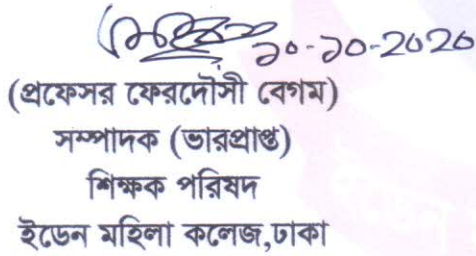 ১০-১০-২০২০
(প্রফেসর ফেরদৌসী বেগম)
সম্পাদক (ভারপ্রাপ্ত)
শিক্ষক পরিষদ
ইডেন মহিলা কলেজ,ঢাকা